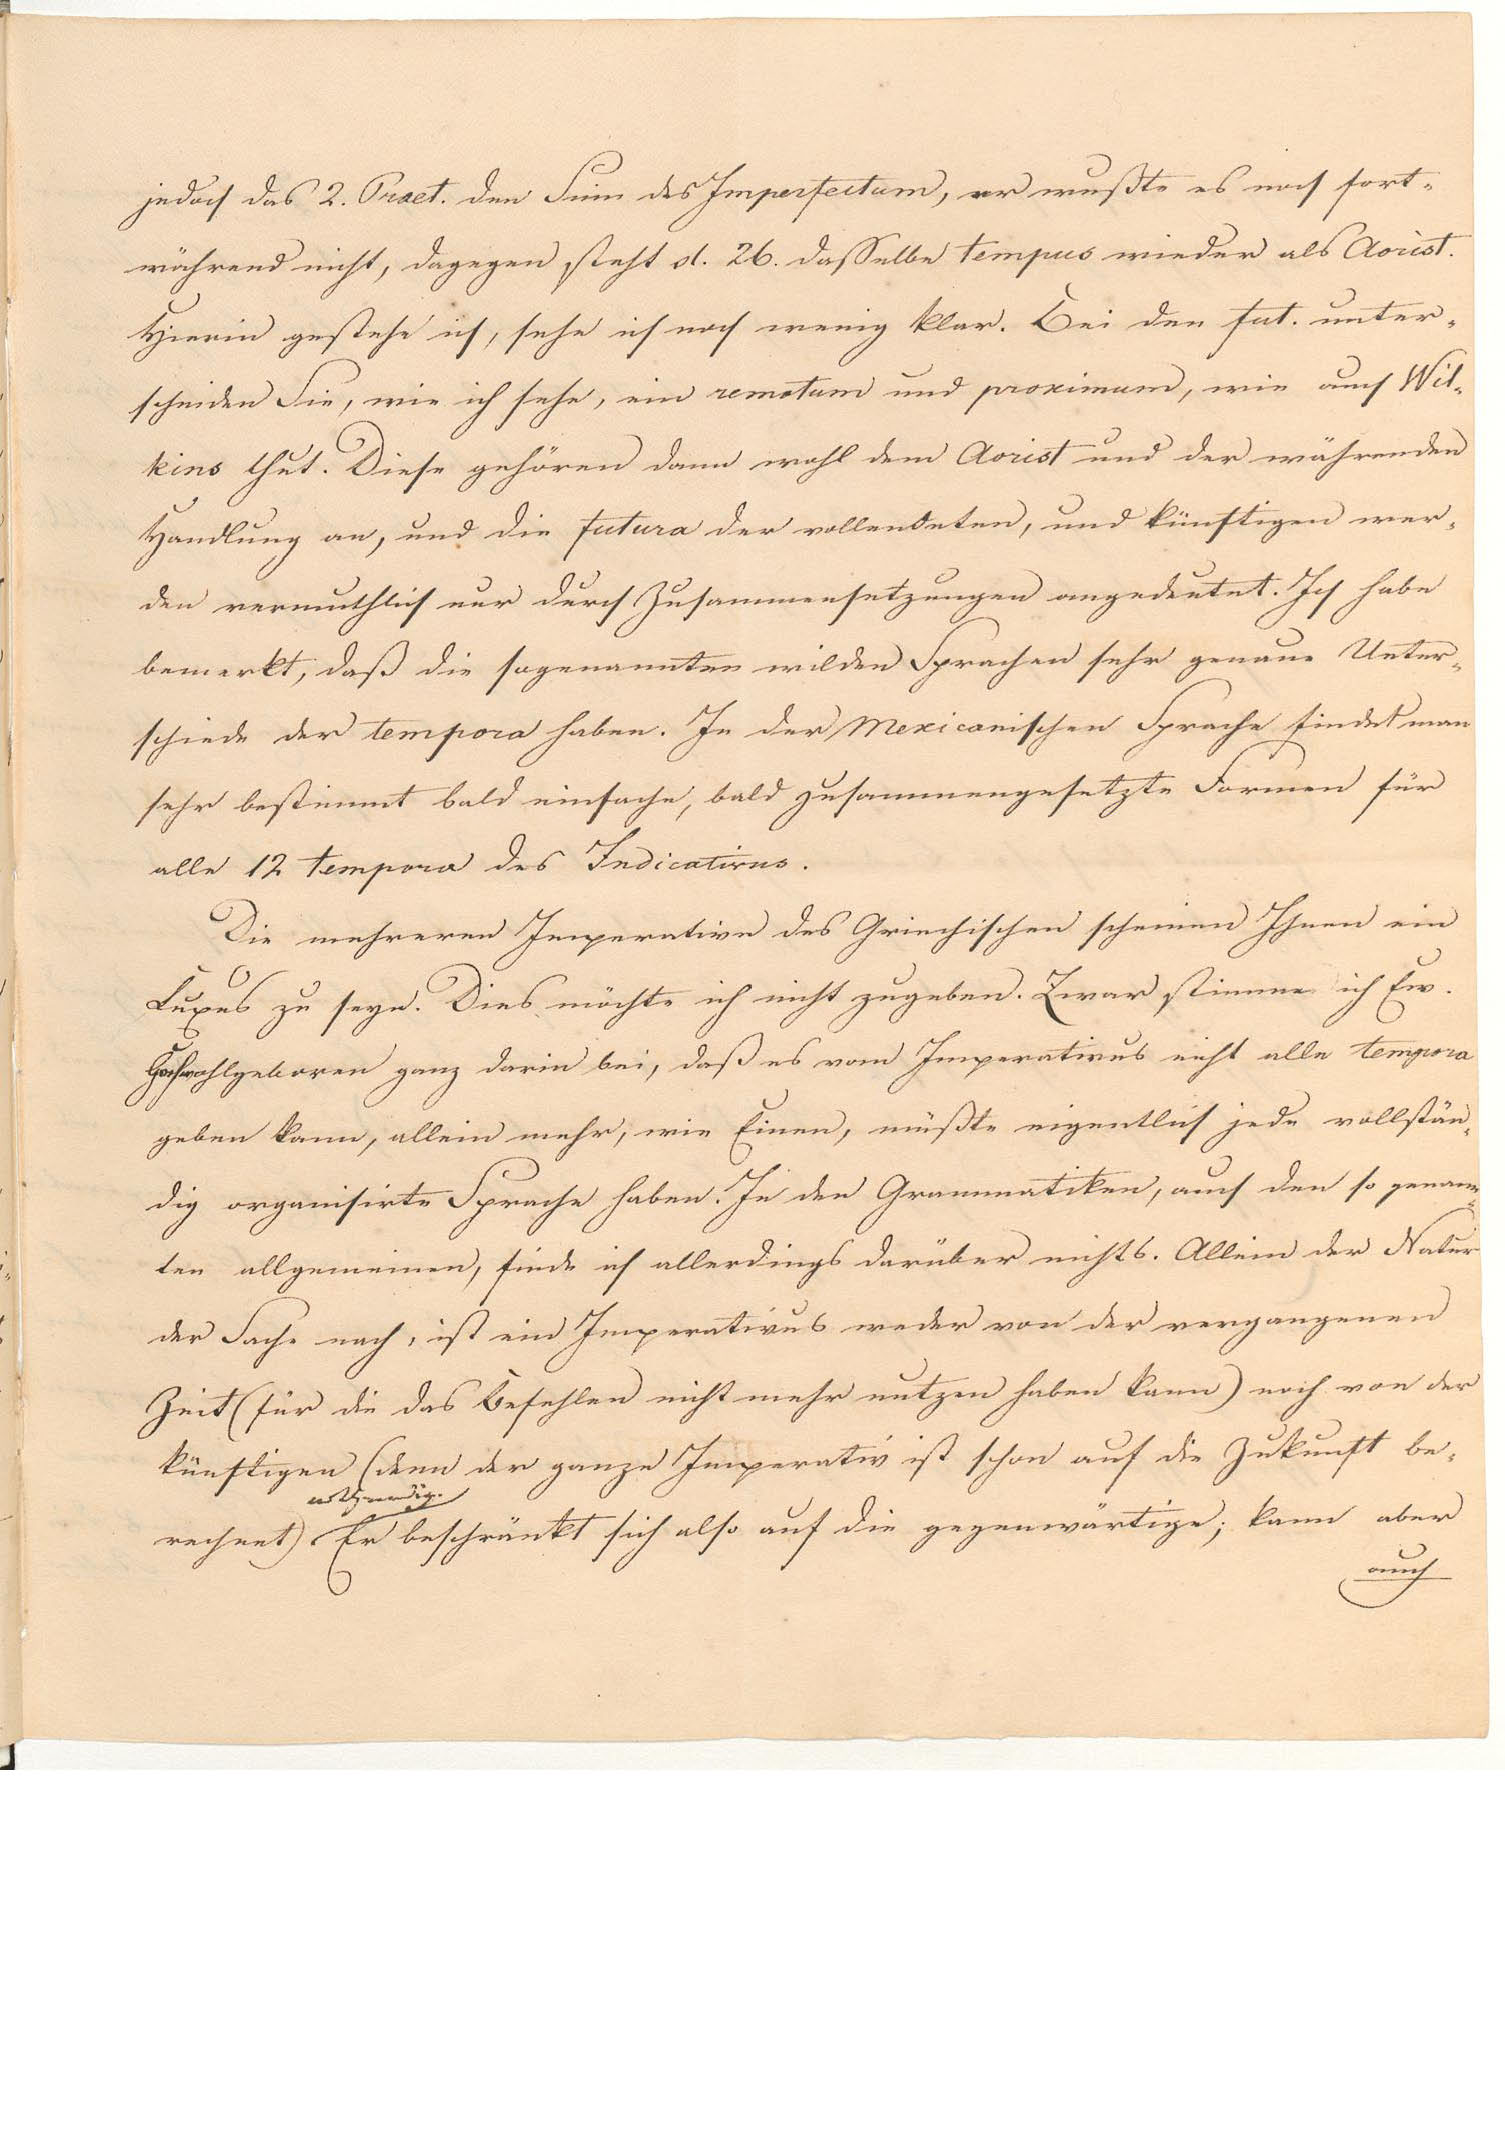 jedoch das 2. Praet. den Sinn des Imperfectum, er wußte es noch fort-
während nicht, dagegen steht sl. 26. dasselbe tempus wieder als Aorist.
Hierin gestehe ich, sehe ich noch wenig klar. Bei den fut. unter-
scheiden Sie, wie ich sehe, ein remotum und proximum, wie auch Wil-
kins thut. Diese gehören dann wohl dem Aorist und der währenden
Handlung an, und die futura der vollendeten, und künftigen wer-
den vermuthlich nur durch Zusammensetzungen angedeutet. Ich habe
bemerkt, daß die sogenannten wilden Sprachen sehr genaue Unter-
schiede der tempora haben. In der Mexicanischen Sprache findet man
sehr bestimmt bald einfache, bald zusammengesetzte Formen für
alle 12 tempora des Indicativus.
Die mehreren Imperative des Griechischen scheinen Ihnen ein
Luxus zu seyn. Dies möchte ich nicht zugeben. Zwar stimme ich Ew.
Hochwohlgeboren ganz darin bei, daß es vom Imperativus nicht alle tempora
geben kann, allein mehr, wie Einen, müßte eigentlich jede vollstän-
dig organisirte Sprache haben. In den Grammatiken, auch den so genann-
ten allgemeinen, finde ich allerdings darüber nichts. Allein der Natur
der Sache nach, ist ein Imperativus weder von der vergangenen
Zeit (für die das Befehlen nicht mehr nutzen haben kann) noch von der
künftigen (denn der ganze Imperativ ist schon auf die Zukunft be-
nothwendig.
rechnet) Er beschränkt sich also auf die gegenwärtige; kann aber
auch